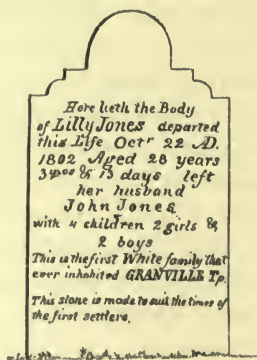 Here lieth the Body
of Lilly Jones departed
this Life Octr 22 AD.
1802 Aged 28 years
3 & 13 days left
her husband
John Jones
with 4 children 2 girls &
2 boys
This is the first White family that
ever inhabited GRANVILLE Tp.
This stone is made to suit the times of
the first settlers.